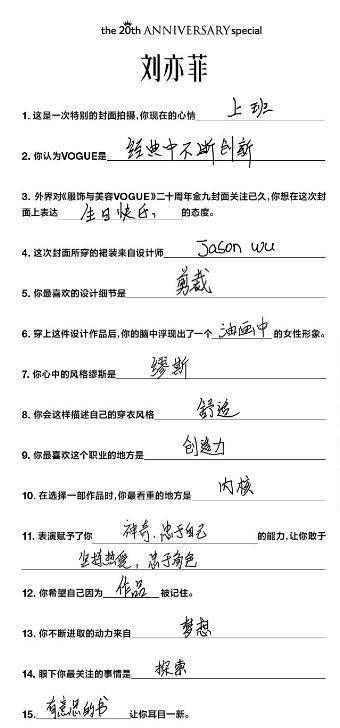 the 20th ANNIVERSARY special
刘亦菲
1. 这是一次特别的封面拍摄,你现在的心情 上班
2. 你认为VOGUE是 经典中不断创新
3. 外界对《服饰与美容VOGUE》二十周年金九封面关注已久,你想在这次封
面上表达 生日快乐, 的态度。
4. 这次封面所穿的裙装来自设计师 Jason wu
5. 你最喜欢的设计细节是 剪裁
6. 穿上这件设计作品后,你的脑中浮现出了一个 油画中 的女性形象。
7. 你心中的风格缪斯是 缪斯
8. 你会这样描述自己的穿衣风格 舒适
9. 你最喜欢这个职业的地方是 创造力
10. 在选择一部作品时,你最看重的地方是 内核
11. 表演赋予了你 神奇、忠于自己 的能力,让你敢于
坚持热爱,忠于角色
12. 你希望自己因为 作品 被记住。
13. 你不断进取的动力来自 梦想
14. 眼下你最关注的事情是 探索
15. 有意思的书 让你耳目一新。